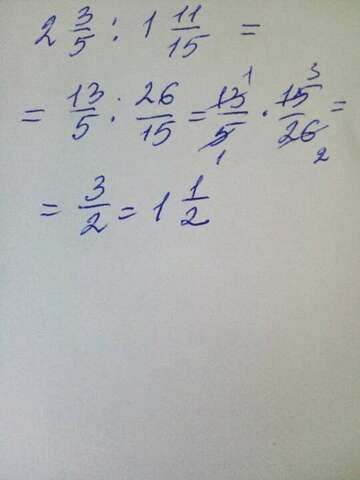 2 3/5 : 1 11/15 =
= 13/5 : 26/15 = 13/5 1/1 · 15/26 3/2 =
= 3/2 = 1 1/2